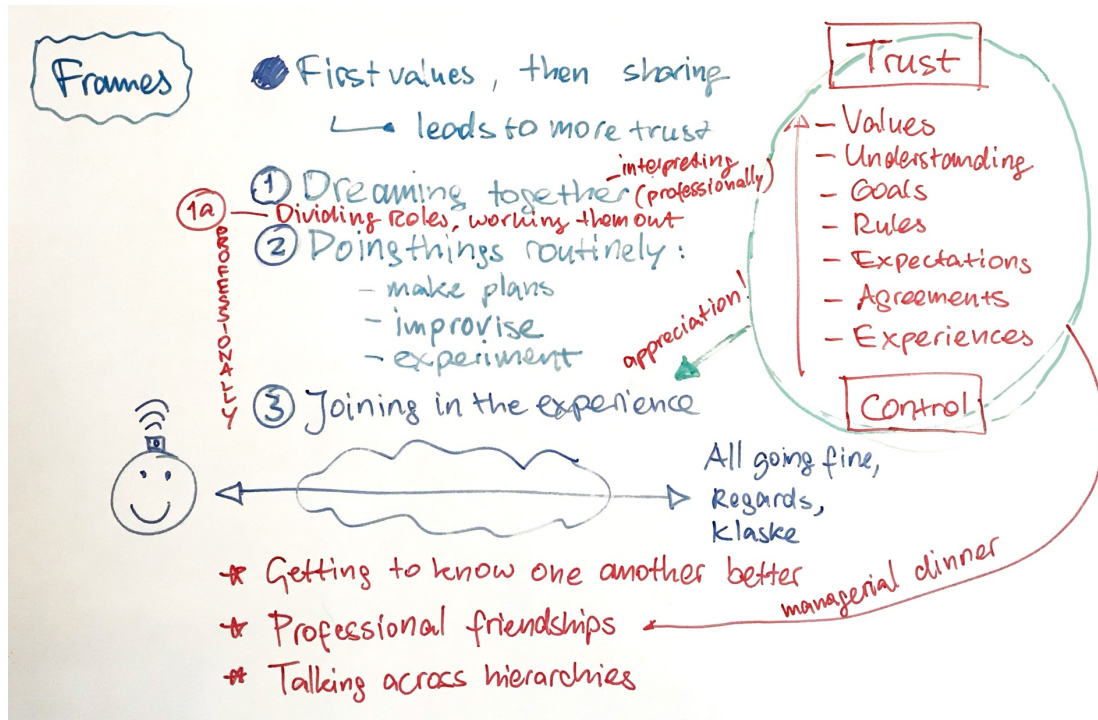 Frames
First values, then sharing
leads to more trust
1 Dreaming together
- interpreting
(professionally)
1a - Dividing Roles, working them out
PROFESSIONALLY
2 Doing things routinely:
- make plans
- improvise
- experiment
3 Joining in the experience
appreciation!
Trust
- Values
- Understanding
- Goals
- Rules
- Expectations
- Agreements
- Experiences
Control
All going fine,
Regards,
Klaske
* Getting to know one another better
* Professional friendships
managerial dinner
* Talking across hierarchies